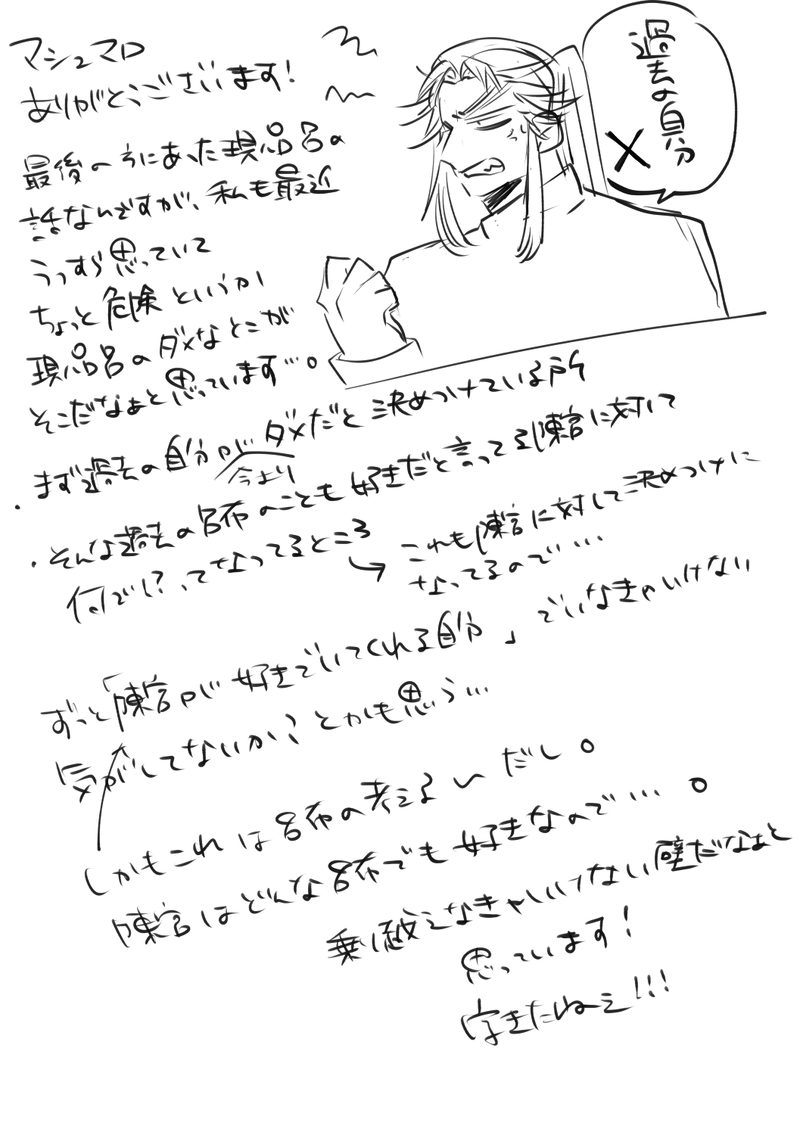 マシュマロ
ありがとうございます!
過去の自分
×
最後の方にあった現品呂の
話なんですが、私も最近
うっすら思っていて
ちょっと危険というか
現品呂のダメなとこが
そこだなぁと思っています…。
・まず過去の自分がダメだと決めつけている所
今より
・そんな過去の呂布のことも好きだと言ってる陳宮に対して
何で!?ってなってるところ
→これも陳宮に対して決めつけに
なってるので…
ずっと「陳宮が好きでいてくれる自分」でいなきゃいけない
気がしてないか?とかも思う…
しかもこれは呂布の考える〃だし。
陳宮はどんな呂布でも好きなので…。
乗り越えなきゃいけない壁だなぁと
思っています!
字きたねえ!!!